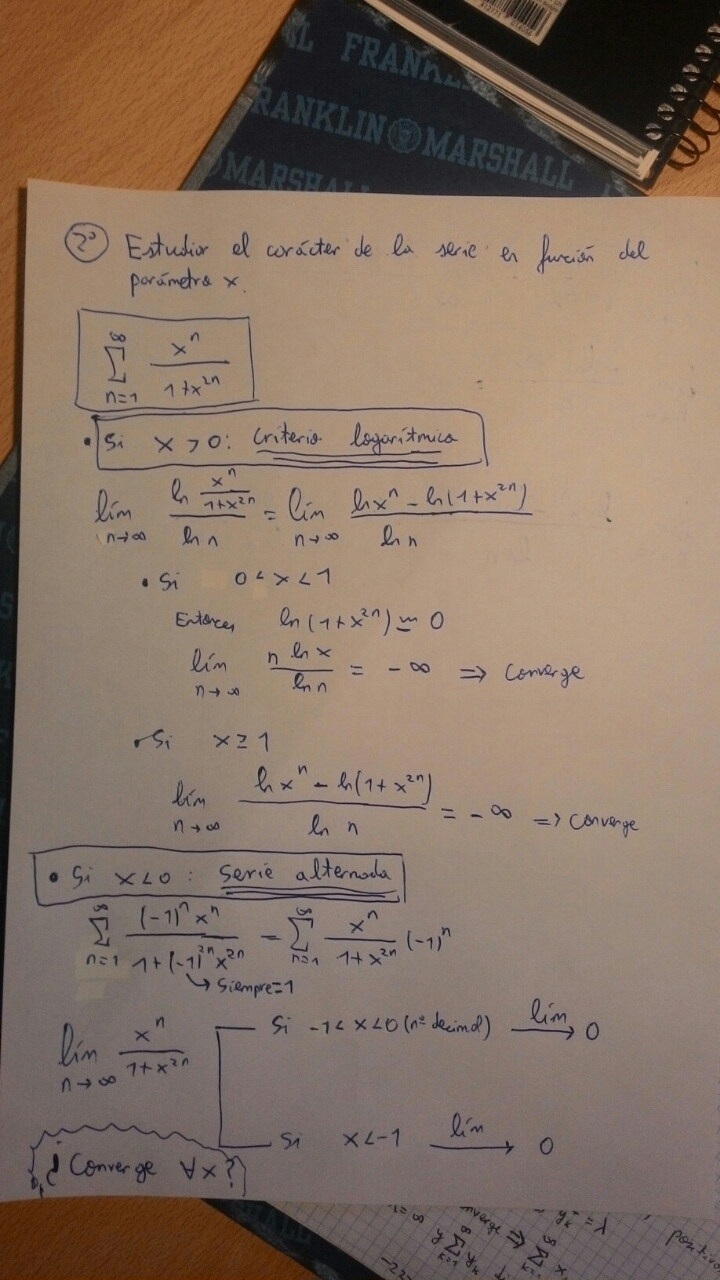 FRANKLIN
FRANKLIN MARSHALL
MARSHALL
2º Estudiar el carácter de la serie en función del
parámetro x.
∞ Σ n=1 x^n / 1+x^2n
• Si x > 0: Criterio logarítmico
lím n→∞ ln x^n/1+x^2n / ln n = lím n→∞ ln x^n - ln(1+x^2n) / ln n
• Si 0 < x < 1
Entonces ln(1+x^2n) ≃ 0
lím n→∞ n ln x / ln n = -∞ ⇒ Converge
• Si x ≥ 1
lím n→∞ ln x^n - ln(1+x^2n) / ln n = -∞ ⇒ Converge
• Si x < 0 : serie alternada
∞ Σ n=1 (-1)^n x^n / 1+(-1)^2n x^2n = ∞ Σ n=1 x^n / 1+x^2n (-1)^n
↳ Siempre=1
lím n→∞ x^n / 1+x^2n
Si -1 < x < 0 (nº decimal) lím → 0
Si x < -1 lím → 0
¿Converge ∀x?